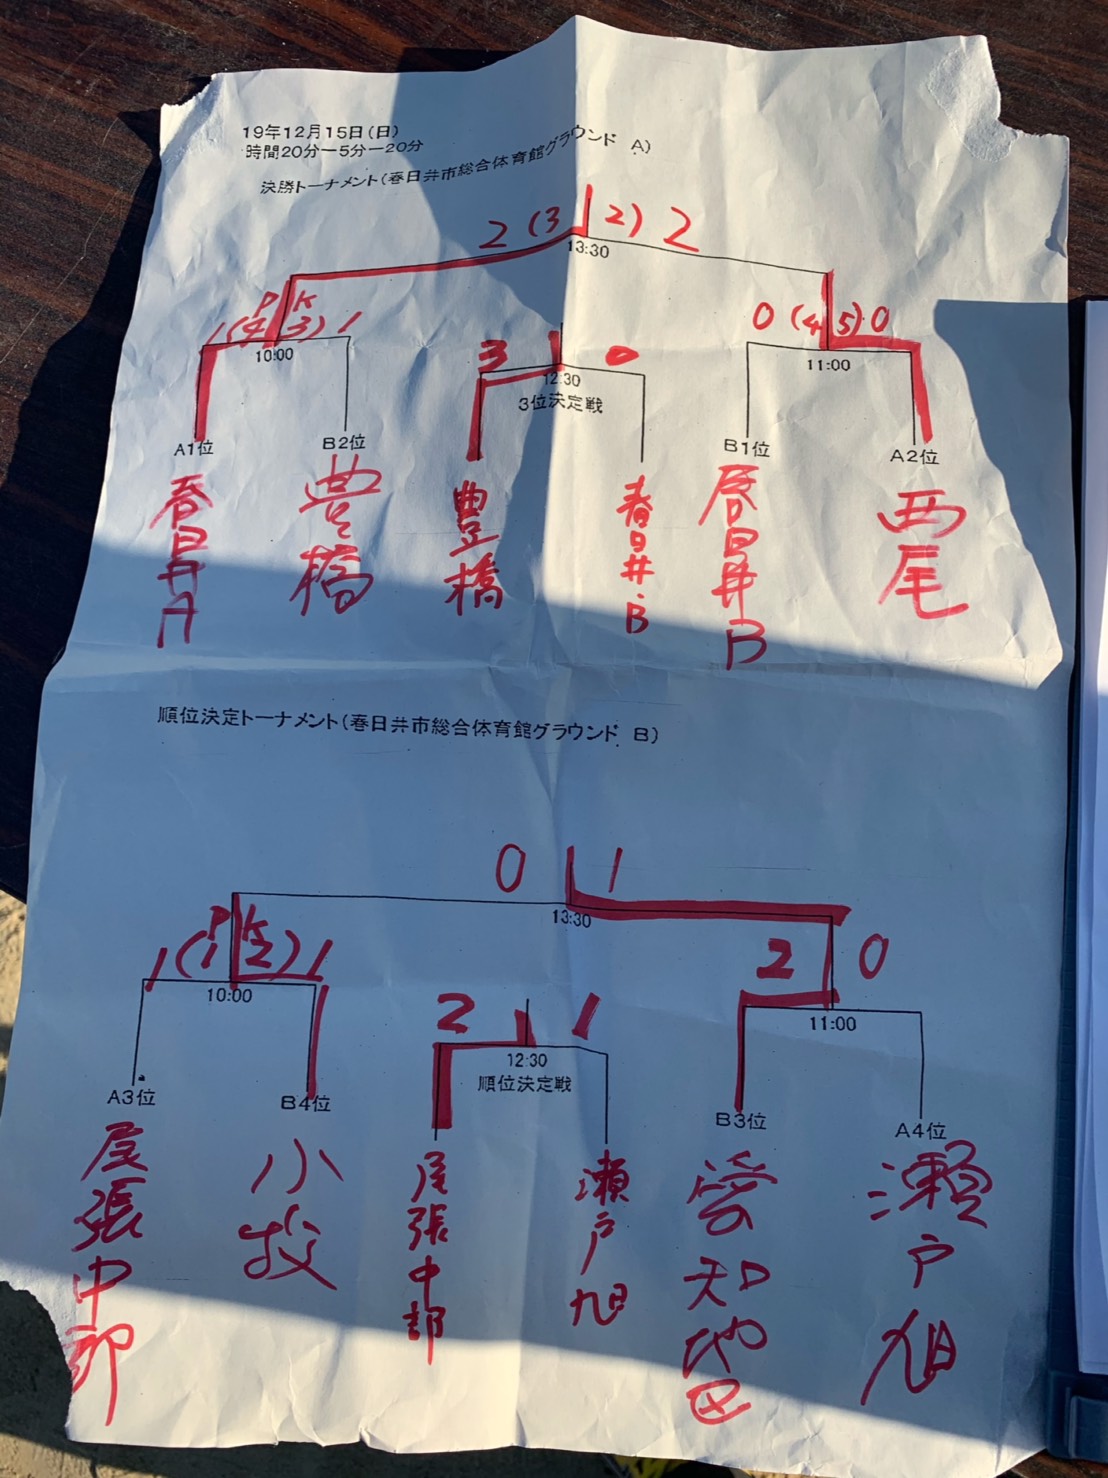 19年12月15日(日)
時間20分ー5分ー20分
決勝トーナメント(春日井市総合体育館グラウンド A)
2 (3 2) 2
13:30
PK
1 (4 3) 1
10:00
3 0
12:30
3位決定戦
0 (4 5) 0
11:00
A1位
B2位
B1位
A2位
春日井A
豊橋
豊橋
春日井B
春日井B
西尾
順位決定トーナメント(春日井市総合体育館グラウンド B)
0 1
13:30
PK
1 (1 2) 1
10:00
2 1
12:30
順位決定戦
2 0
11:00
A3位
B4位
B3位
A4位
尾張中部
小牧
尾張中部
瀬戸旭
愛知池田
瀬戸旭